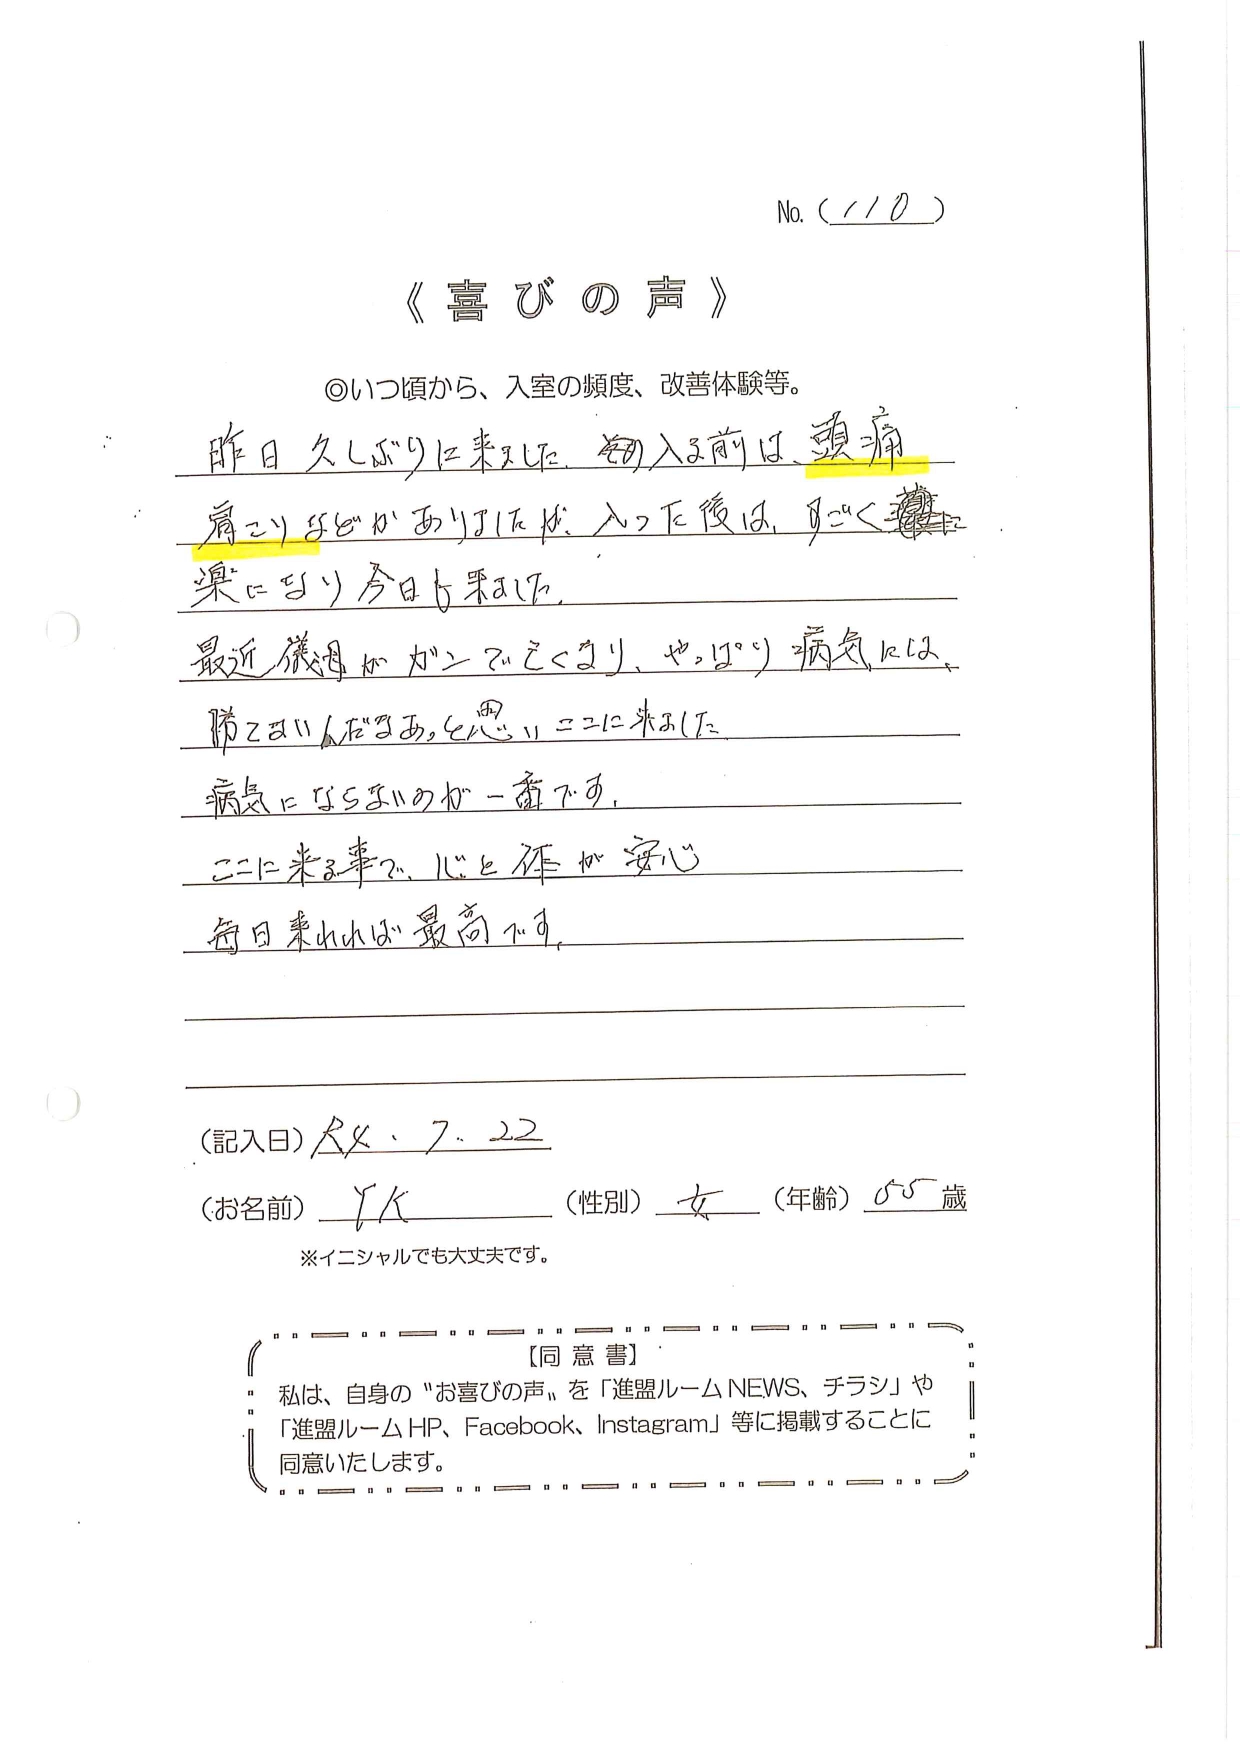 No.（110）
《喜びの声》
◎いつ頃から、入室の頻度、改善体験等。
昨日久しぶりに来ました。入る前は、頭痛
肩こりなどがありましたが、入った後は、すごく
楽になり今日も来ました。
最近義母がガンで亡くなり、やっぱり病気には、
勝てないんだなあ。と思いここに来ました
病気にならないのが一番です。
ここに来る事で、心と体が安心
毎日来れれば最高です。
（記入日）R4.7.22
（お名前）YK（性別）女（年齢）55歳
※イニシャルでも大丈夫です。
【同意書】
私は、自身の〝お喜びの声〟を「進盟ルームNEWS、チラシ」や
「進盟ルームHP、Facebook、Instagram」等に掲載することに
同意いたします。